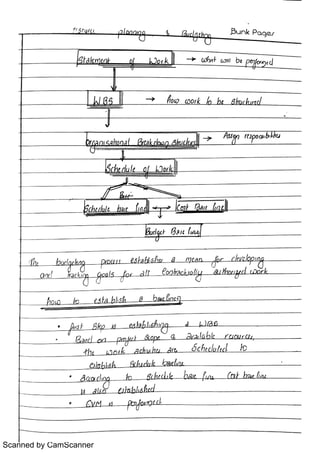 planning & Budgeting Bunk Pages
Statement of Work → what will be performed
WBS → How work to be structured
Organisational Breakdown Structure → Assign responsibility
Schedule of Work
Schedule base line Cost Base line
Budget Base line
The budgeting process establish a mean for developing
and tracking goals for all contractually authorized work
How to establish a baseline
• first step is establishing a WBS
• Based on project scope & available resources,
the work activities are scheduled to
establish schedule baseline
• According to schedule base line Cost base line
is also established
• EVM is performed
Scanned by CamScanner